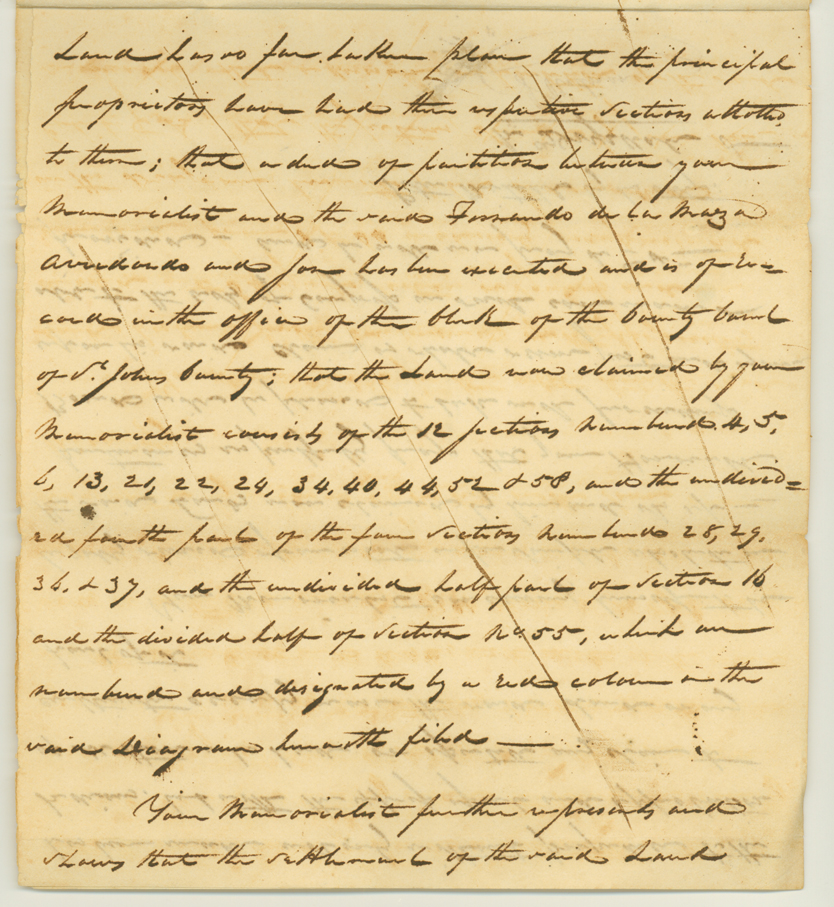 Land has so far taken place that the principal
proprietors have had their respective Sections allotted
to them; that a deed of partition between your
Memorialist and the said Fernando de la Maza
Arredondo and Son has been executed and is of Re=
cord in the office of the Clerk of the County Court
of St. Johns County; that the Land now claimed by your
Memorialist consists of the 12 sections numbered 4, 5,
6, 13, 21, 22, 24, 34, 40, 44, 52 & 58, and the undivid=
ed fourth part of the four Sections numbered 28, 29,
36, & 37, and the undivided half part of Section 16
and the divided half of Section No 55, which are
numbered and designated by a red colour in the
said Diagram herewith filed —
Your Memorialist further represents and
shows that the settlement of the said Land